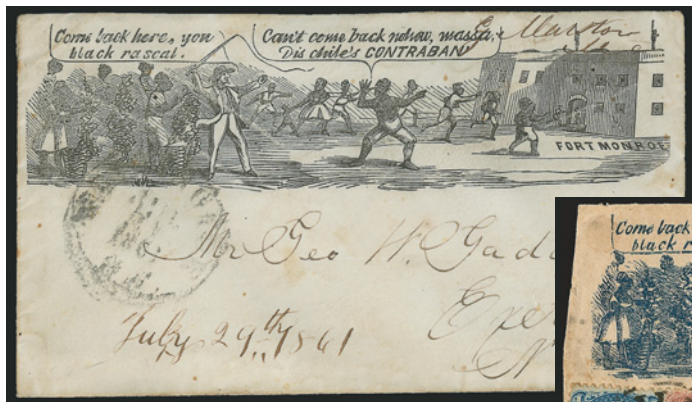 Come back here, you
black rascal.
Can't come back nohow, massa,
Dis chile's CONTRABAN'
FORT MONROE
Mr Geo W. Gad
Exe
N
July 29th 1861
Come back
black r